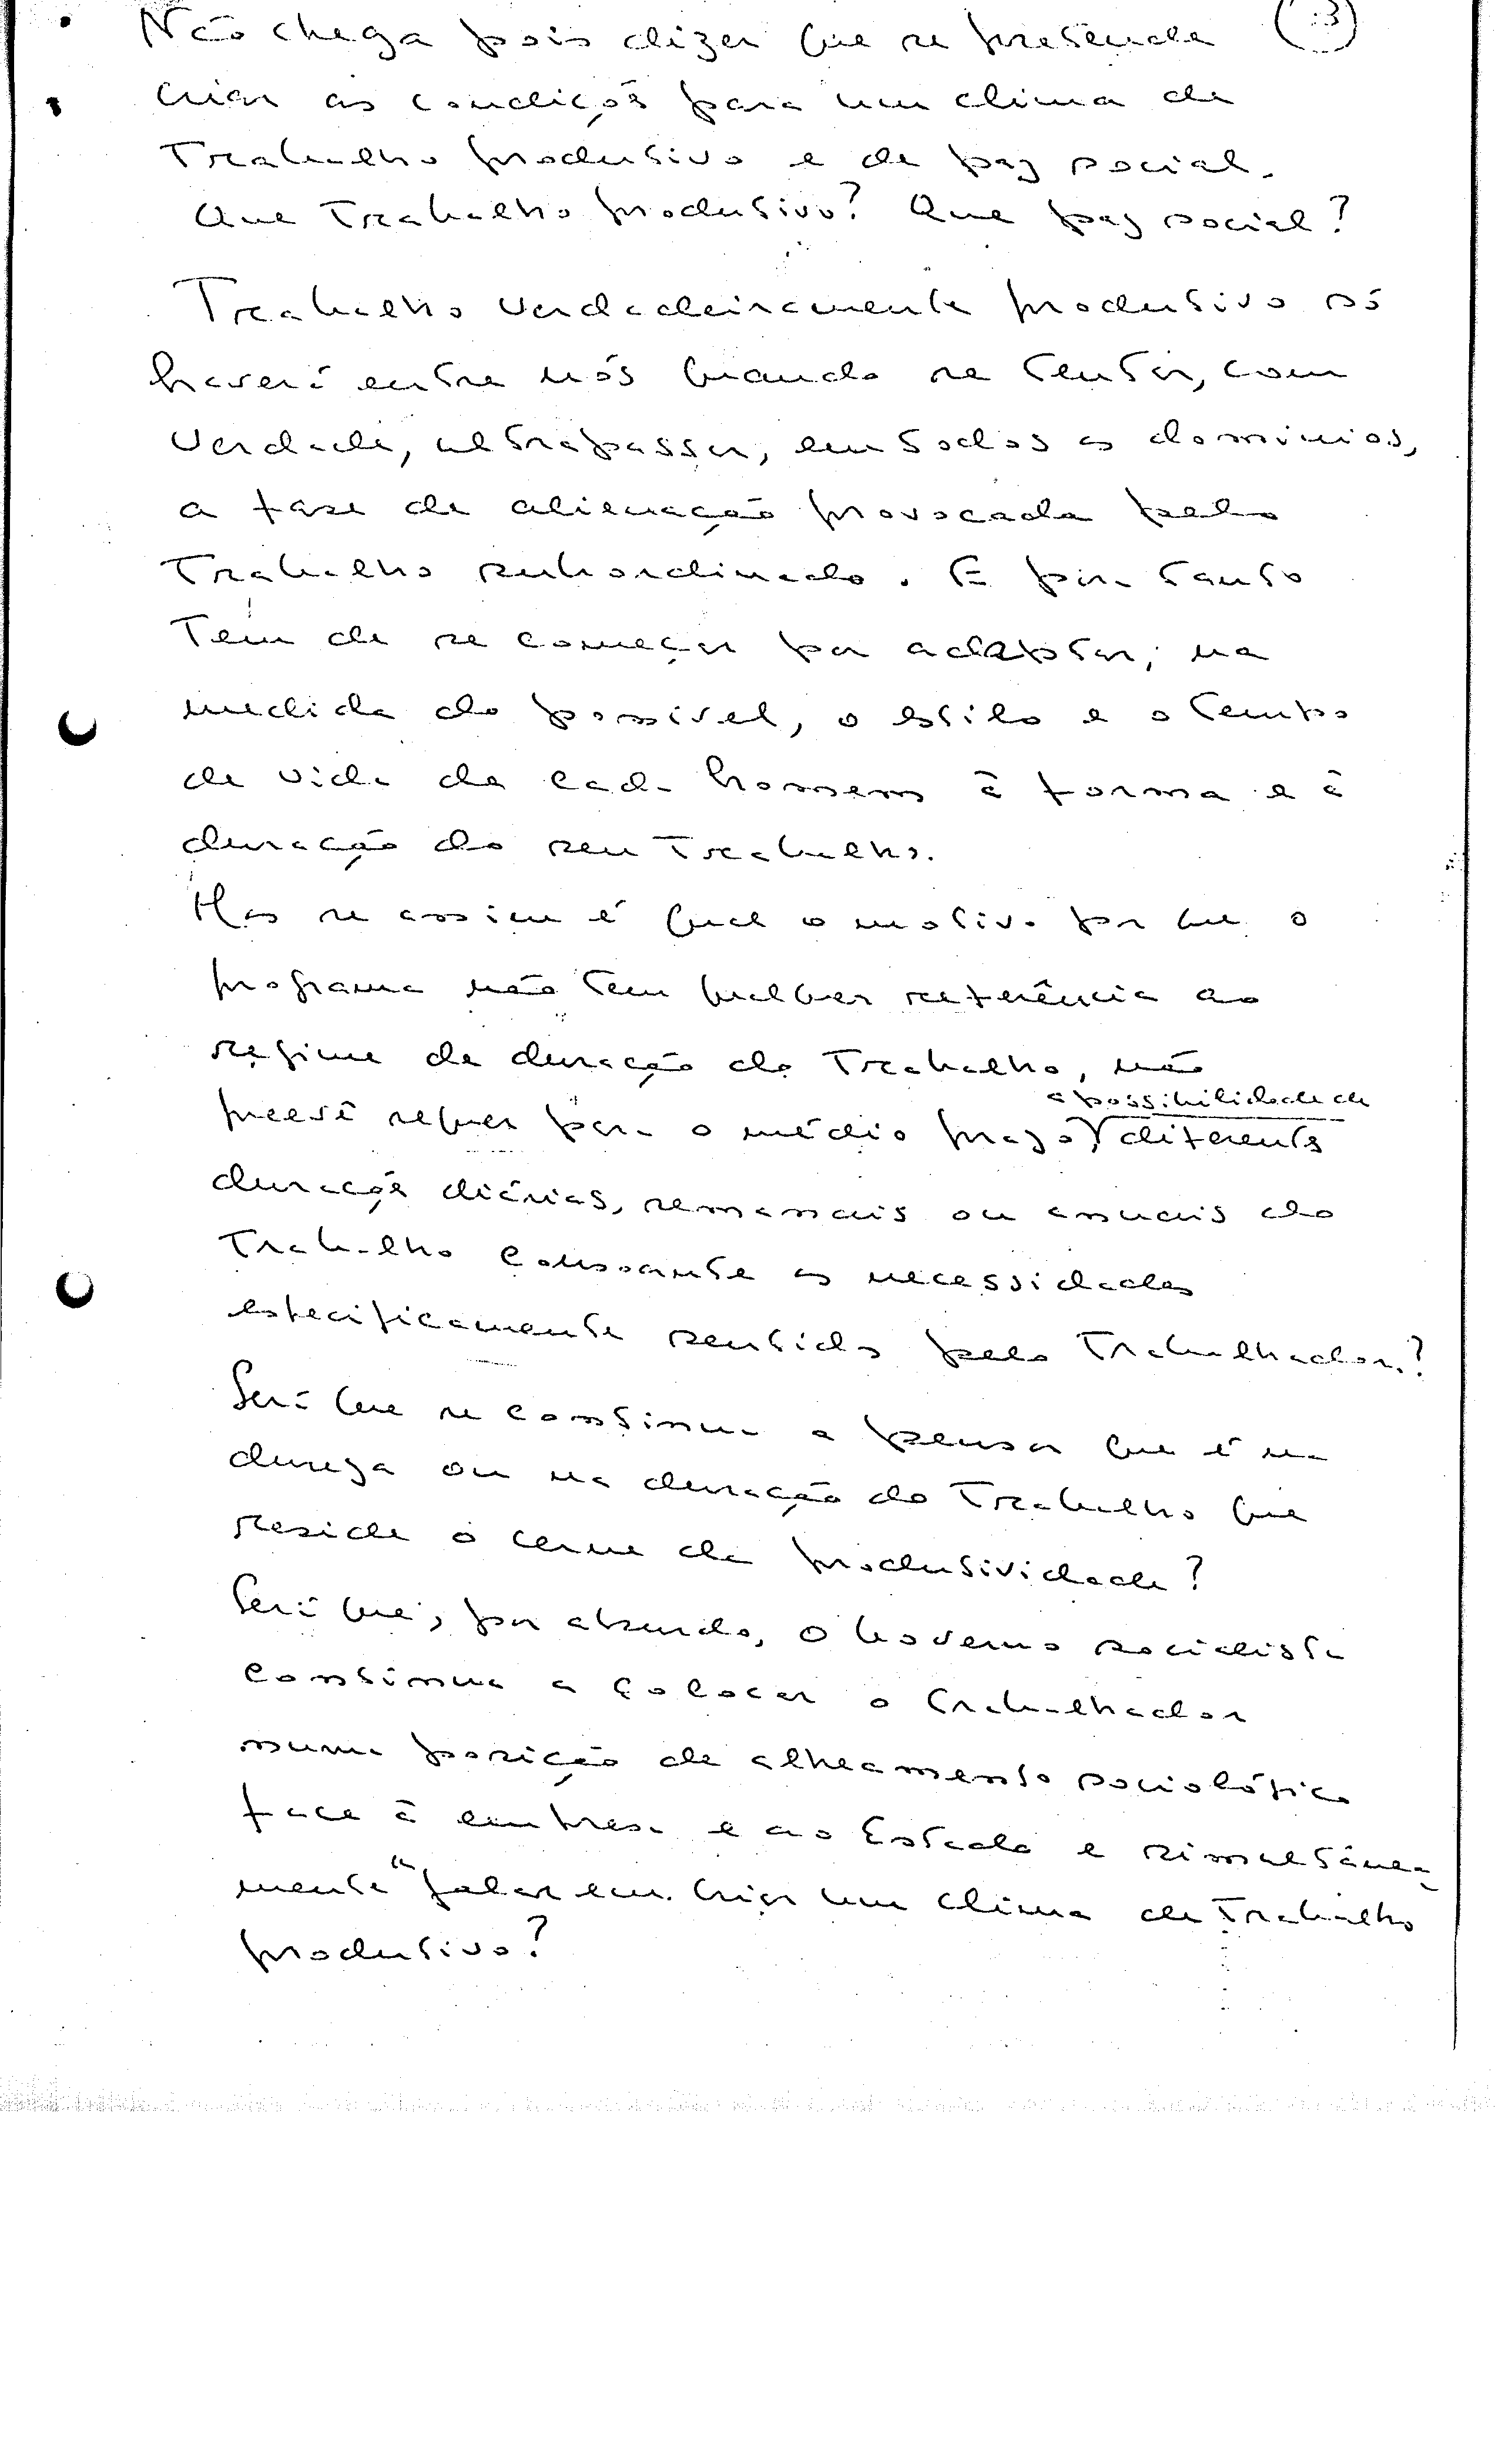 Não chega pois dizer que se pretende (:3)
criar as condições para um clima de
Trabalho produtivo e de paz social.
Que Trabalho produtivo? Que paz social?
Trabalho verdadeiramente produtivo só
haverá entre nós quando se tentar, com
verdade, ultrapassar, em todos os domínios,
a fase de alienação provocada pelo
Trabalho subordinado. E para tanto
Tem de se começar por adaptar, na
medida do possível, o estilo e o tempo
de vida de cada homem à forma e à
duração do seu Trabalho.
Mas se assim é qual o motivo por que o
programa não tem qualquer referência ao
regime de duração do Trabalho, não
a possibilidade de
prevê sequer para o médio prazo, diferentes
durações diárias, semanais ou anuais do
Trabalho consoante as necessidades
especificamente sentidas pelo Trabalhador?
Será que se continua a pensar que é na
dureza ou na duração do Trabalho que
reside o cerne da produtividade?
Será que, por absurdo, o Governo socialista
continua a colocar o trabalhador
numa posição de alheamento sociológico
face à empresa e ao Estado e simultânea-
mente falar em criar um clima de Trabalho
produtivo?